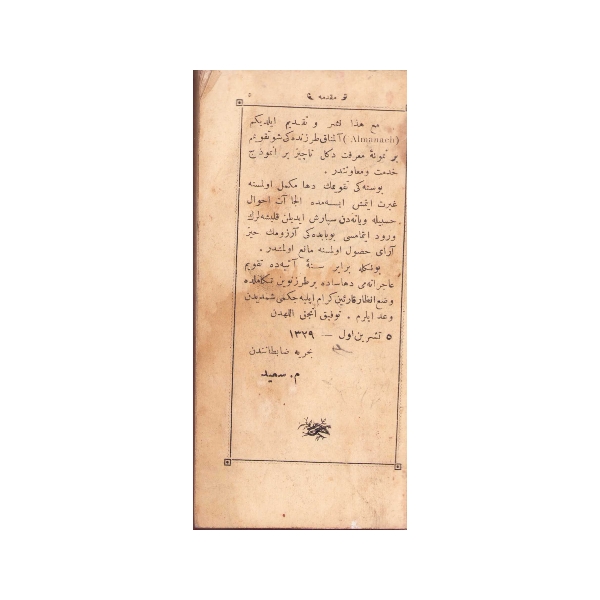 مقدمه
مع هذا نشر و تقديم ايلديكم
(Almanach) آلمناق طرزنده‌كى شو تقويم
بر نمونهٔ معرفت دكل ناچيز بر انموذج
خدمت ومعاونتدر .
بوسنه‌كى تقويمك دها مكمل اولمسنه
غيرت ايتمش ايسه‌مده الجاآت احوال
حسبيله ويانه‌دن سپارش ايديلن قليشه‌لرك
ورود ايتمامسى بوبابده‌كى آرزومك حيز
آراى حصول اولمسنه مانع اولمشدر .
بونكله برابر سنهٔ آتيه‌ده تقويم
عاجزانه‌مى دها ساده بر طرز نوين تكاملده
وضع انظار قارئين كرام ايليه‌جكمى شمديدن
وعد ايلرم . توفيق آنجق اللهدن
٥ تشرين اول — ١٣٢٩
بحريه ضابطانندن
م. سعيد